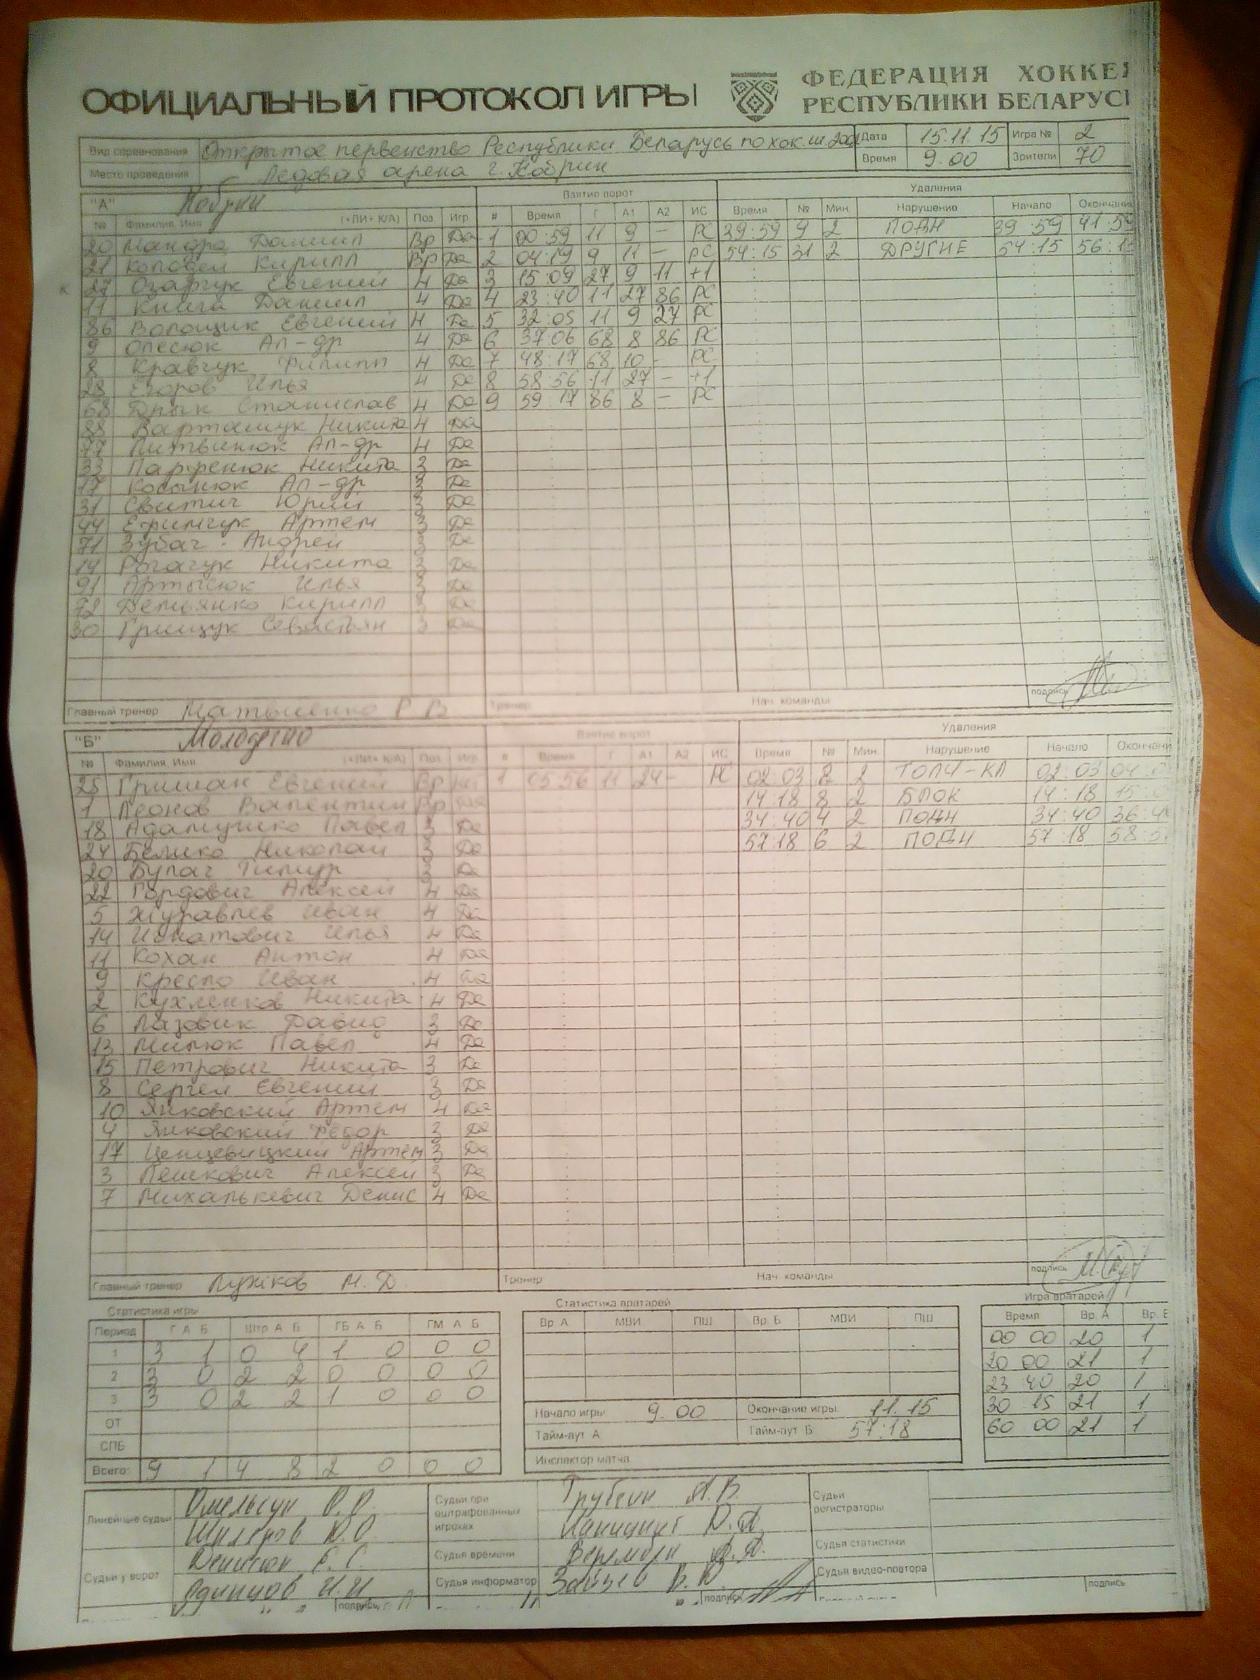 ОФИЦИАЛЬНЫЙ ПРОТОКОЛ ИГРЫ
ФЕДЕРАЦИЯ ХОККЕЯ
РЕСПУБЛИКИ БЕЛАРУСЬ
Вид соревнования Открытое первенство Республики Беларусь по хок. Дата 15.11.15 Игра № 2
Место проведения Ледовая арена г. Кобрин Время 9.00 Зрители 70
"А" Кобрин Взятие ворот Удаления
№ Фамилия Имя (+ЛИ+ К/А) Поз Игр # Время Г А1 А2 ИС Время № Мин. Нарушение Начало Окончан
20 Мандра Даниил Вр Да 1 00:59 11 9 - РС 39:59 9 2 ПОДН 39:59 41:59
21 Коловей Кирилл Вр Да 2 04:19 9 11 - РС 54:15 31 2 ДРУГИЕ 54:15 56:15
К 27 Озарчук Евгений Ч Да 3 15:09 27 9 11 +1
11 Книга Даниил Ч Да 4 23:40 11 27 86 РС
86 Волощик Евгений Н Да 5 32:05 11 9 27 РС
9 Олесюк Ал-др Ч Да 6 37:06 68 8 86 РС
8 Кравчук Филипп Ч Да 7 48:17 68 10 - РС
28 Егоров Илья Ч Да 8 58:56 11 27 - +1
68 Дрык Станислав Ч Да 9 59:17 86 8 - РС
88 Вартацук Никита Ч Да
77 Литвинюк Ал-др Ч Да
33 Парфенюк Никита З Да
17 Косынюк Ал-др З Да
31 Свитич Юрий З Да
44 Ефимчук Артем З Да
71 Зубач Андрей З Да
14 Рогачук Никита З Да
91 Артысюк Илья З Да
72 Демьянко Кирилл З Да
30 Грищук Севастьян З Да
Главный тренер Матыценко Р В Тренер Нач. команды подпись
"Б" Молодечно Взятие ворот Удаления
№ Фамилия Имя (+ЛИ+ К/А) Поз. Игр # Время Г А1 А2 ИС Время № Мин. Нарушение Начало Окончани
25 Гришан Евгений Вр 1 05:56 11 24 - РС 02:03 8 2 ТОЛЧ-КЛ 02:03 04:0
1 Леонов Валентин Вр Да 14:18 8 2 БЛОК 14:18 15:
18 Адамушко Павел З Да 34:40 4 2 ПОДН 34:40 36:4
24 Белико Николай З Да 57:18 6 2 ПОДН 57:18 58:5
20 Булач Тимур З Да
22 Гордович Алексей Ч Да
5 Журавлев Иван Ч Да
14 Игнатович Илья Ч Да
11 Кохан Антон Ч Да
9 Креспо Иван Ч Да
2 Кухленков Никита Ч Да
6 Лазовик Давид З Да
13 Милюк Павел Ч Да
15 Петрович Никита З Да
8 Сергел Евгений З Да
10 Янковский Артем Ч Да
4 Янковский Федор З Да
17 Ценцевицкий Артем З Да
3 Пешкович Алексей З Да
7 Михалькевич Денис Ч Да
Главный тренер Лужков М. Д. Тренер Нач. команды подпись
Статистика игры Статистика вратарей Игра вратарей
Период Г А Б Штр А Б ГБ А Б ГМ А Б Вр. А МВИ ПШ Вр. Б МВИ ПШ Время Вр. А Вр. Б
1 3 1 0 4 1 0 0 0 00 00 20 1
2 3 0 2 2 0 0 0 0 20 00 21 1
3 3 0 2 2 1 0 0 0 23 40 20 1
ОТ 30 15 21 1
СПБ 60 00 21 1
Всего: 9 1 4 8 2 0 0 0
Начало игры 9.00 Окончание игры 11.15
Тайм-аут А Тайм-аут Б 57:18
Инспектор матча
Линейные судьи
Судьи у ворот Одинцов И.И
Судьи при оштрафованных игроках
Судья времени
Судья информатор Зайцев В.В
Судьи регистраторы
Судья статистики
Судья видео-повтора
подпись подпись подпись